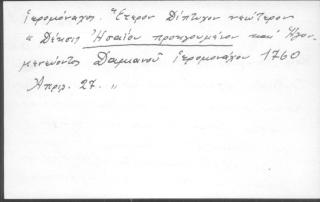 ἱερομόναχος. Ἕτερον Δίπτυχον νεώτερον
"Δέησις Ἡσαΐου προηγουμένου καὶ
Δαμιανοῦ ἱερομονάχου 1760
Ἀπριλ. 27. "